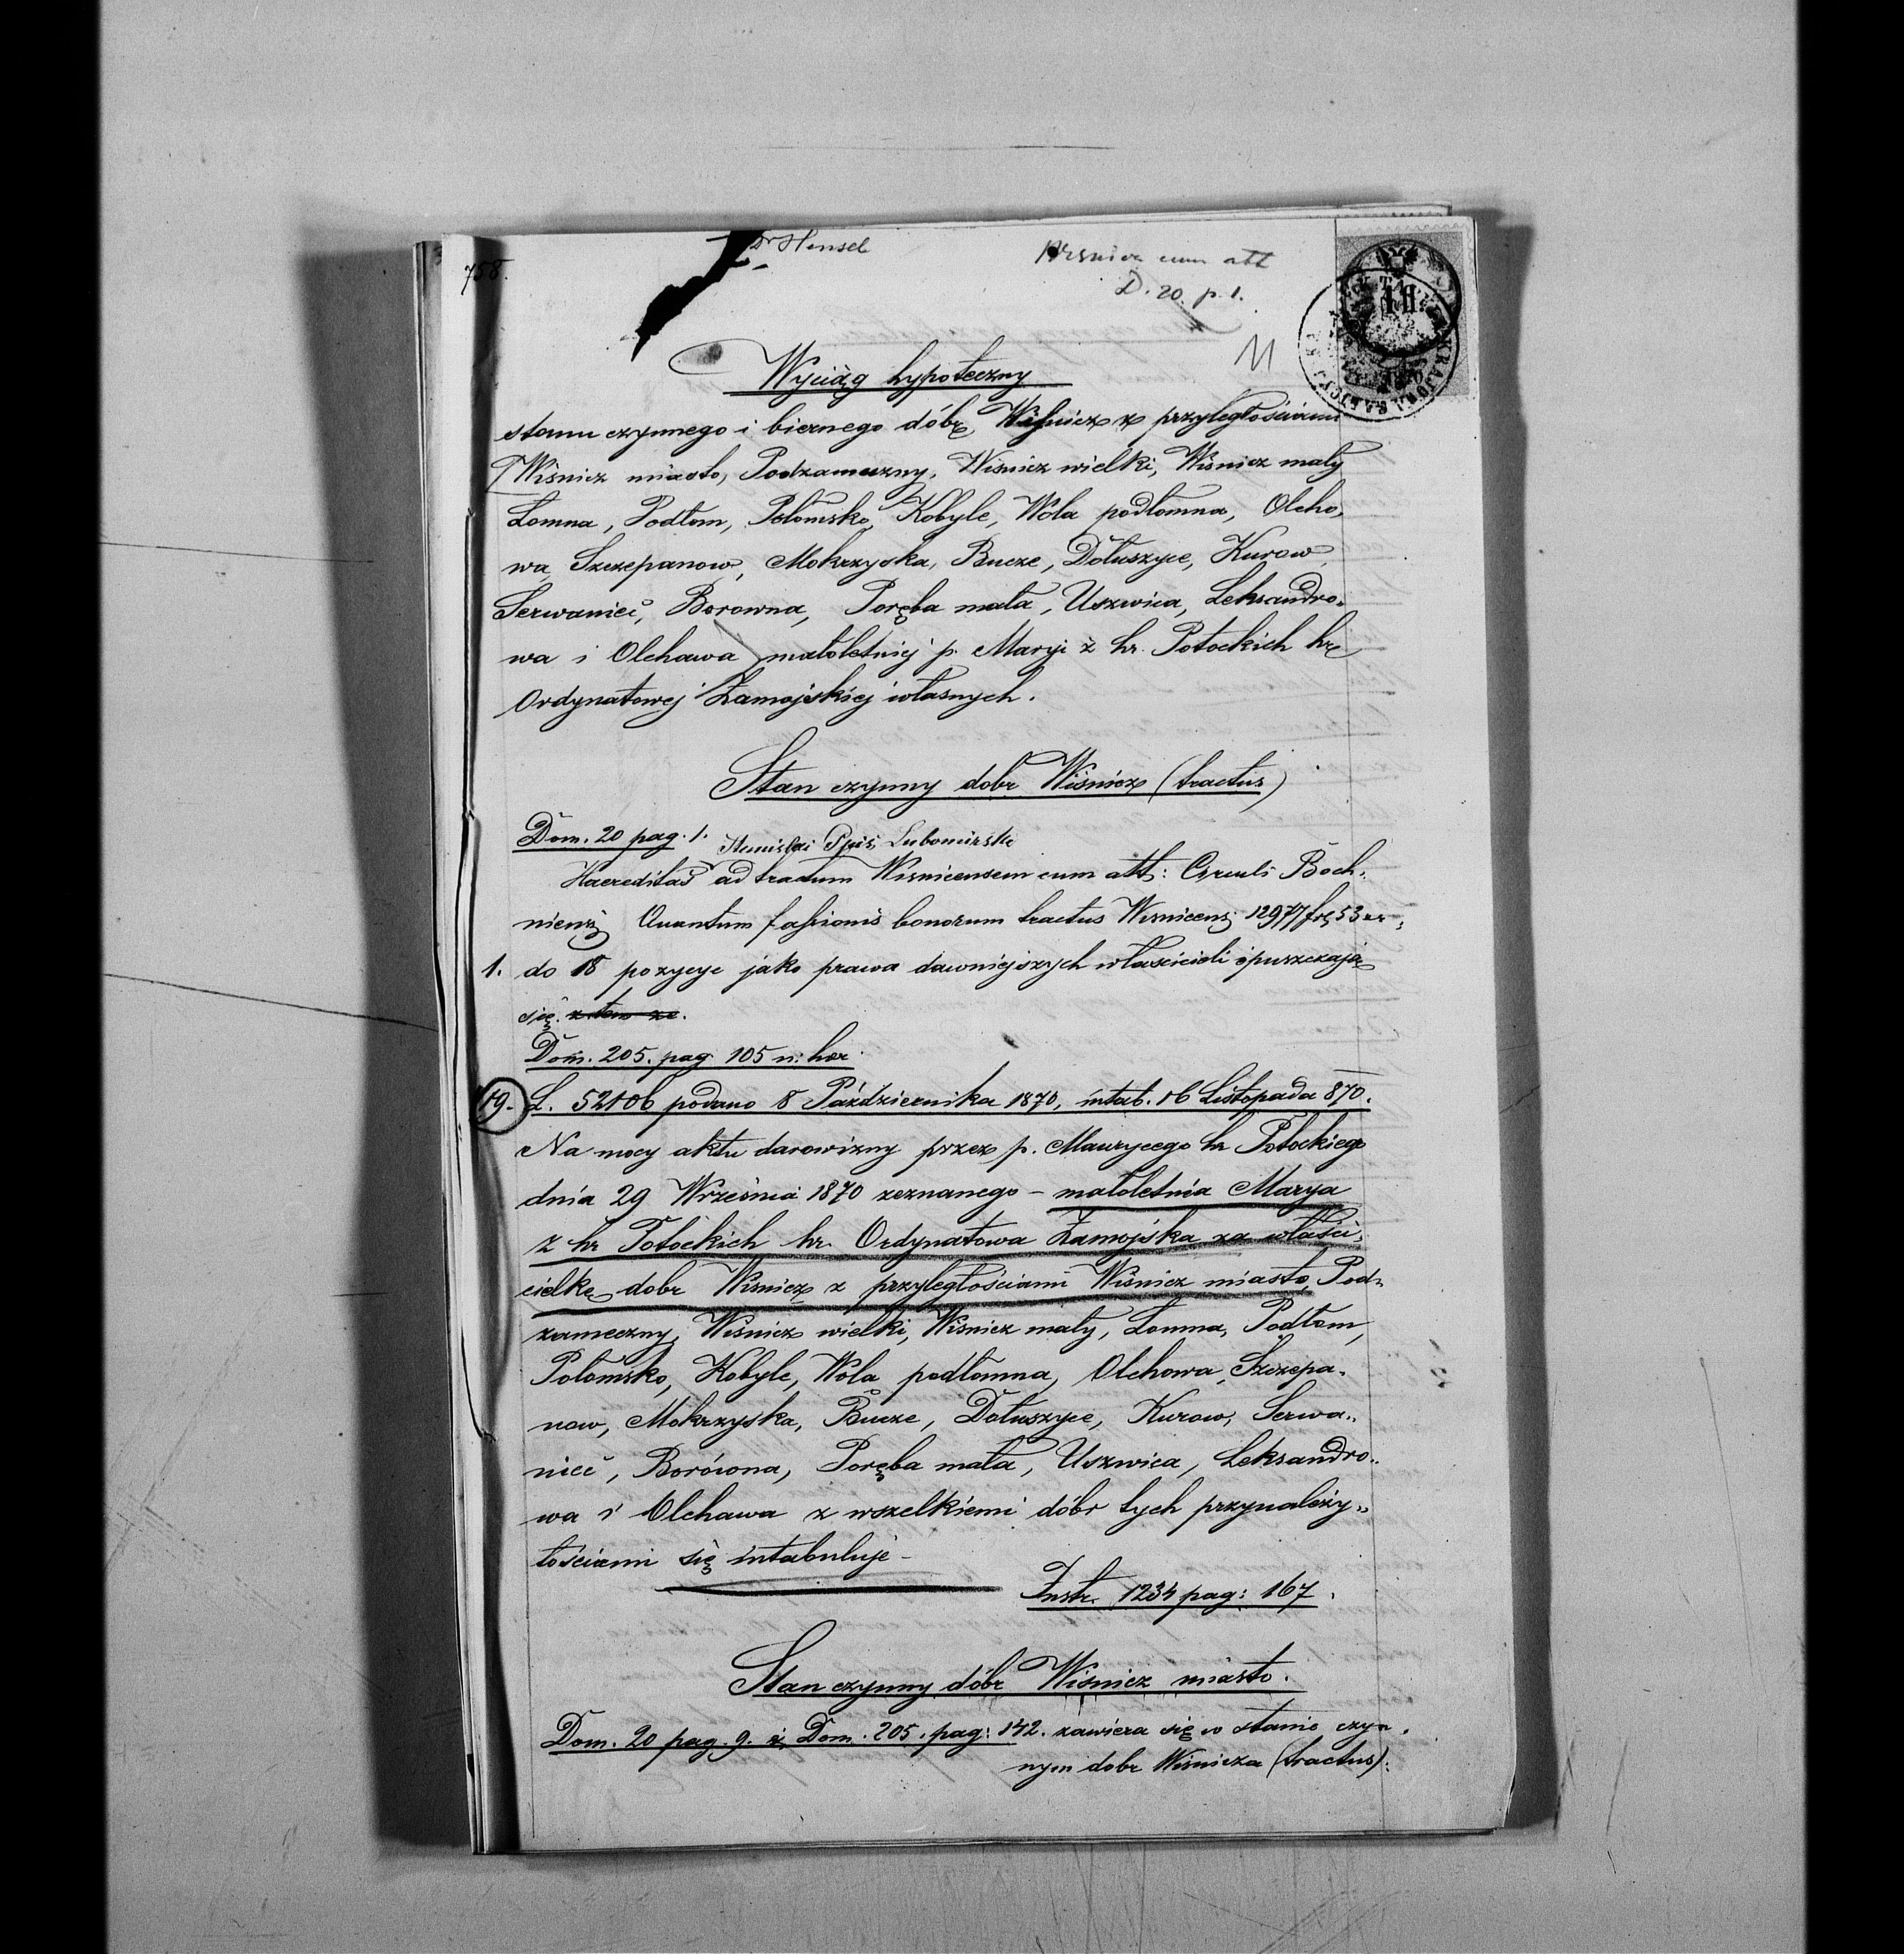 758.
Dr Hensel
Wisnicz cum att
D. 20. p. 1.
Wyciąg hypoteczny
stanu czynnego i biernego dóbr Wiśnicz z przyległościami
Wiśnicz miasto, Podzameczny, Wiśnicz wielki, Wiśnicz mały
Łomna, Podłom, Połomsko, Kobyle, Wola podłomna, Olcho,
wa, Szczepanow, Mokrzyska, Bucze, Dołuszyce, Kurow,
Serwanieć, Borowna, Poręba mała, Uszwica, Leksandro„
wa i Olchawa małoletniej p. Maryi z hr. Potockich hr.
Ordynatowej Zamojskiej własnych.
Stan czynny dobr Wiśnicz (tractus)
Dom. 20 pag. 1. Stanislai Ppis Lubomirski
Haereditas ad tractum Wisnicensem cum att: Circuli Boch„
niensis Quantum fassionis bonorum tractus Wisnicens: 12977 fr 53 xr.
1. do 18 pozycye jako prawa dawniejszych właścicieli opuszczają
się. z tem że.
Dom. 205. pag 105 n. haer.
19. L. 52106 podano 8 Października 1870, intab. 16 Listopada 870.
Na mocy aktu darowizny przez p. Maurycego hr Potockiego
dnia 29 Września 1870 zeznanego – małoletnia Marya
z hr Potockich hr. Ordynatowa Zamojska za właści„
cielkę dobr Wisnicz z przyległościami Wiśnicz miasto, Pod„
zameczny, Wiśnicz wielki, Wiśnicz mały, Łomna, Podłom,
Połomsko, Kobyle, Wola podłomna, Olchowa, Szczepa„
now, Mokrzyska, Bucze, Dołuszyce, Kurow, Serwa„
nieć, Borówna, Poręba mała, Uszwica, Leksandro„
wa i Olchawa z wszelkiemi dóbr tych przynależy„
tościami się intabuluje –
Instr. 1234 pag: 167.
Stan czynny dóbr Wiśnicz miasto.
Dom. 20 pag. 9. i Dom. 205. pag: 142. zawiera się w stanie czyn„
nym dobr Wiśnicza (tractus).